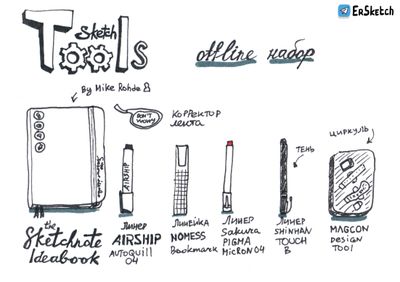 ErSketch
Sketch
Tools
offline набор
By Mike Rohde
DON'T
WORRY
Корректор
лента
циркуль
тень
AIRSHIP
the
Sketchnote
Ideabook
линер
AIRSHIP
AUTOQUILL
04
Линейка
NOMESS
Bookmark
Линер
Sakura
PIGMA
MICRON 04
линер
SHINHAN
TOUCH
B
MAGCON
DESIGN
TOOL